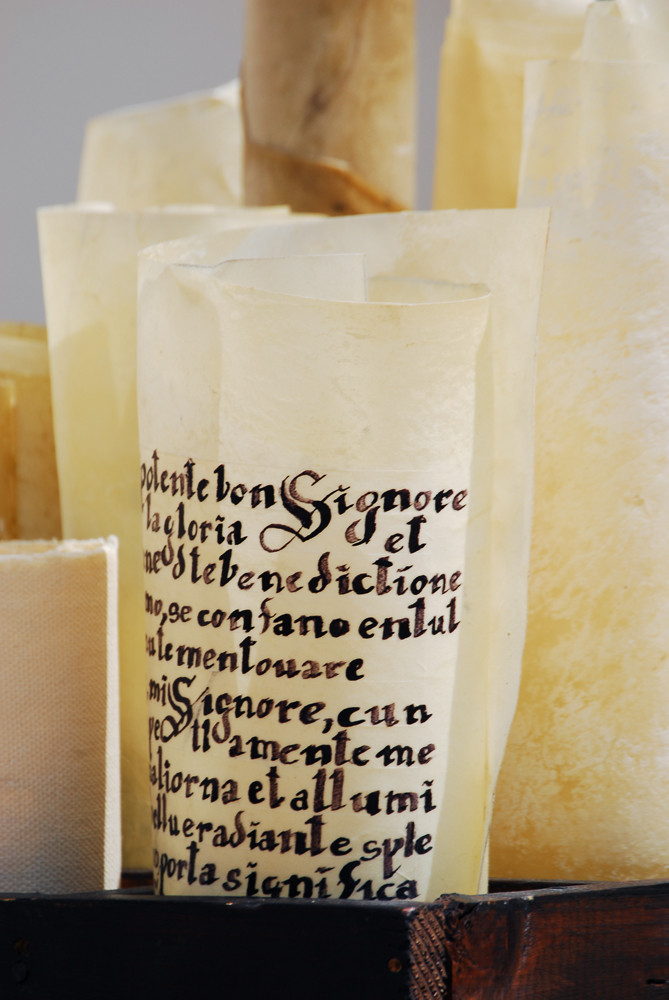 potente bon Signore
la gloria et
ne dite benedictione
mo, se confano en lul
ute mentouare
mi Signore, cun
llamente me
aliorna et allumi
ellu e radiante sple
porta significa